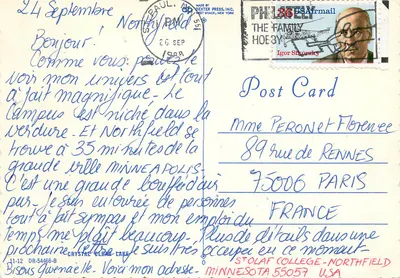 24 Septembre
Northfield
Bonjour!
Comme vous pouvez le
voir mon univers est tout
à fait magnifique - Le
campus est niché dans la
verdure - Et Northfield se
trouve à 35 minutes de la
grande ville MINNEAPOLIS -
C'est une grande bouffée d'air
pur - Je suis entourée de personnes
tout à fait sympas et mon emploi du
temps me plaît beaucoup - Plus de détails dans une
prochaine lettre - Je suis très occupée en ce moment -
Bisous Gwenaëlle - Voici mon adresse -
ST OLAF COLLEGE - NORTHFIELD
MINNESOTA 55057 USA
11-12 DR-54466-B
DEXTER PRESS, INC.
ST PAUL,
PM
26 SEP
1988
PHILATELY
THE FAMILY
HOBBY
Airmail
Igor Sikorsky
Post Card
Mme PERON et Florence
89 rue de RENNES
75006 PARIS
FRANCE